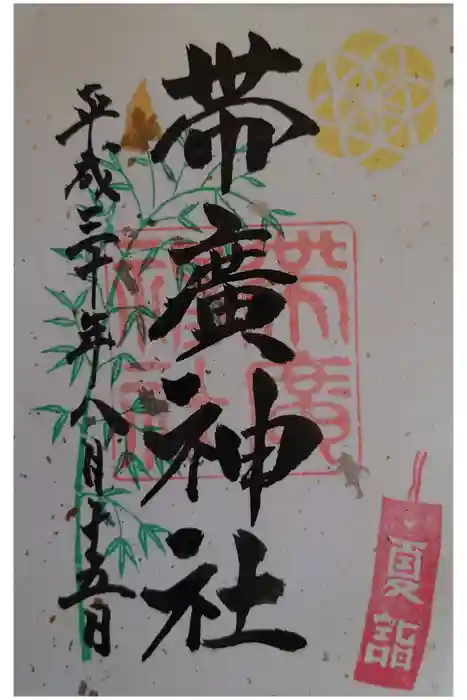 帯廣神社
平成三十年八月十五日
帯廣神社
夏詣